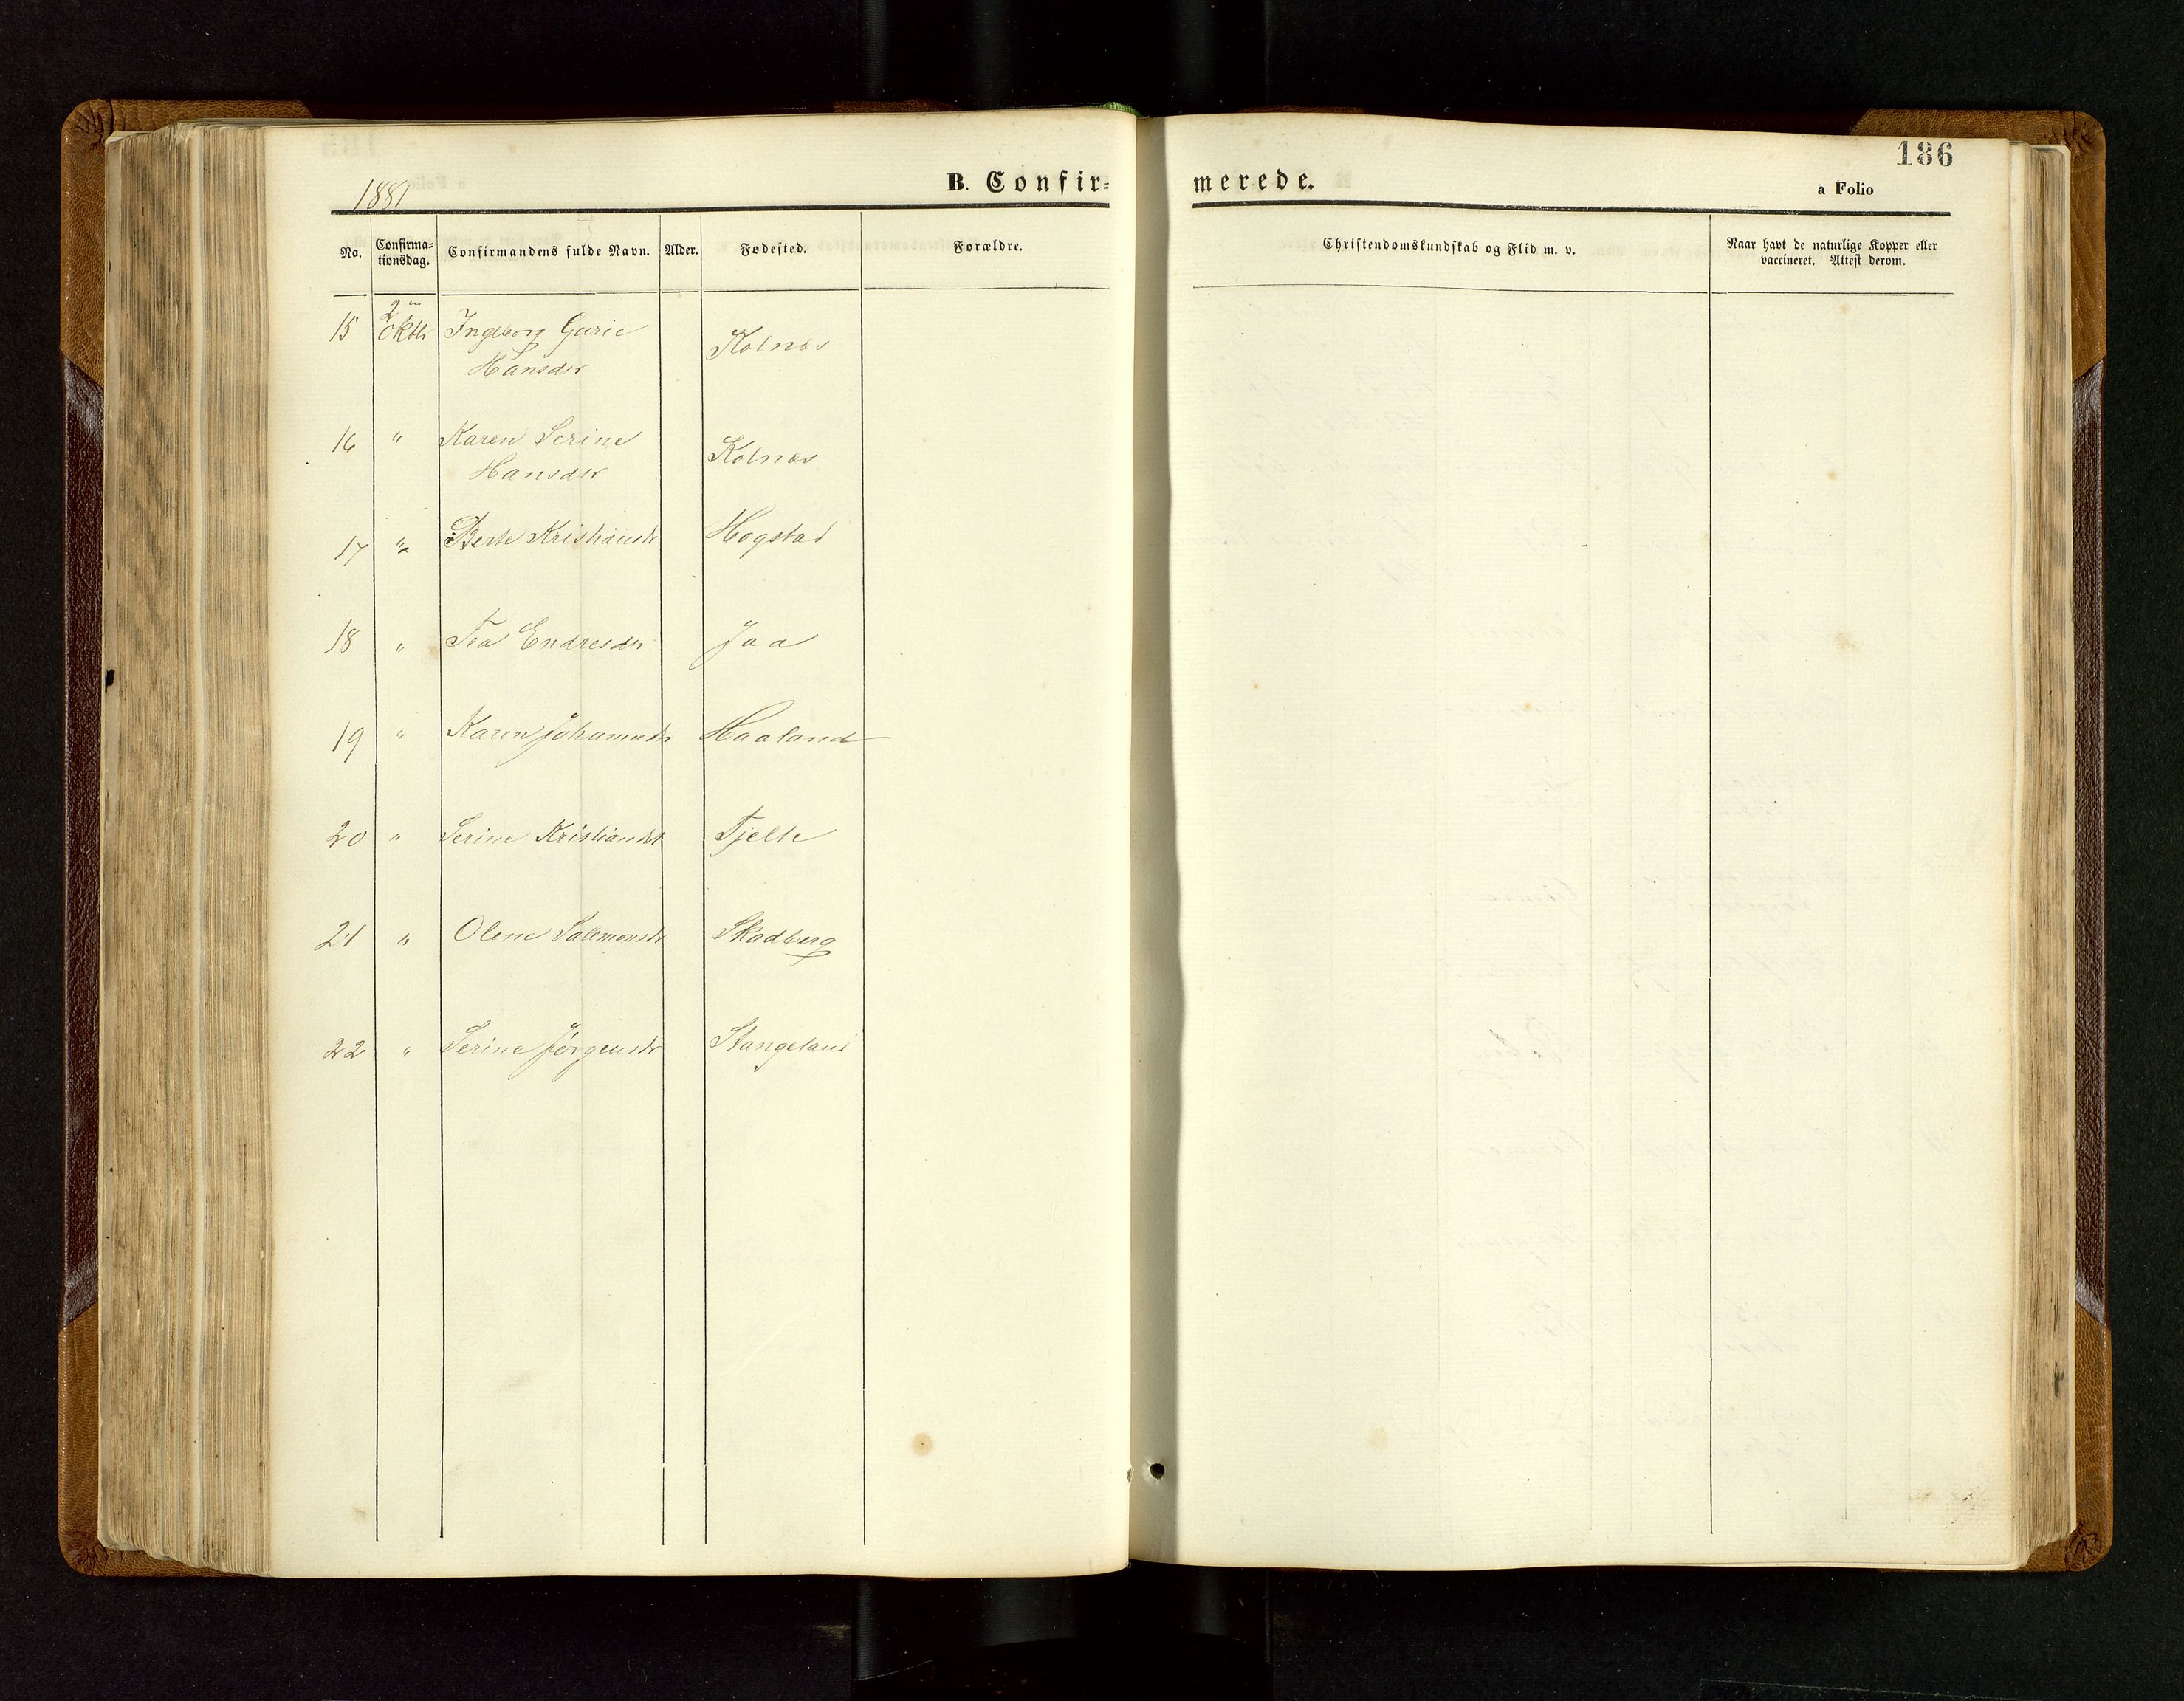 186
1881
B. Confir= merede.
a Folio
No. Confirma=tionsdag. Confirmandens fulde Navn. Alder. Fødested. Forældre. Christendomskundskab og Flid m. v. Naar havt de naturlige Kopper eller vaccineret. Attest derom.
2en
15 Oktb Ingeborg Gurie Kolnæs
Hansdtr
16 " Karen Serine Kolnæs
Hansdtr
17 " Berte Kristiansdr Hogstad
18 " Tea Endresdtr Jaa
19 " Karen Johannesdr Haaland
20 " Serine Kristiansdt Tjelte
21 " Olene Salemonsdr Skadberg
22 " Serine Jörgensdr Stangeland